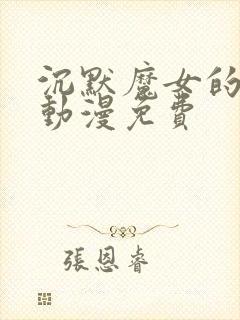 沉默魔女的
動漫免費
張恩睿